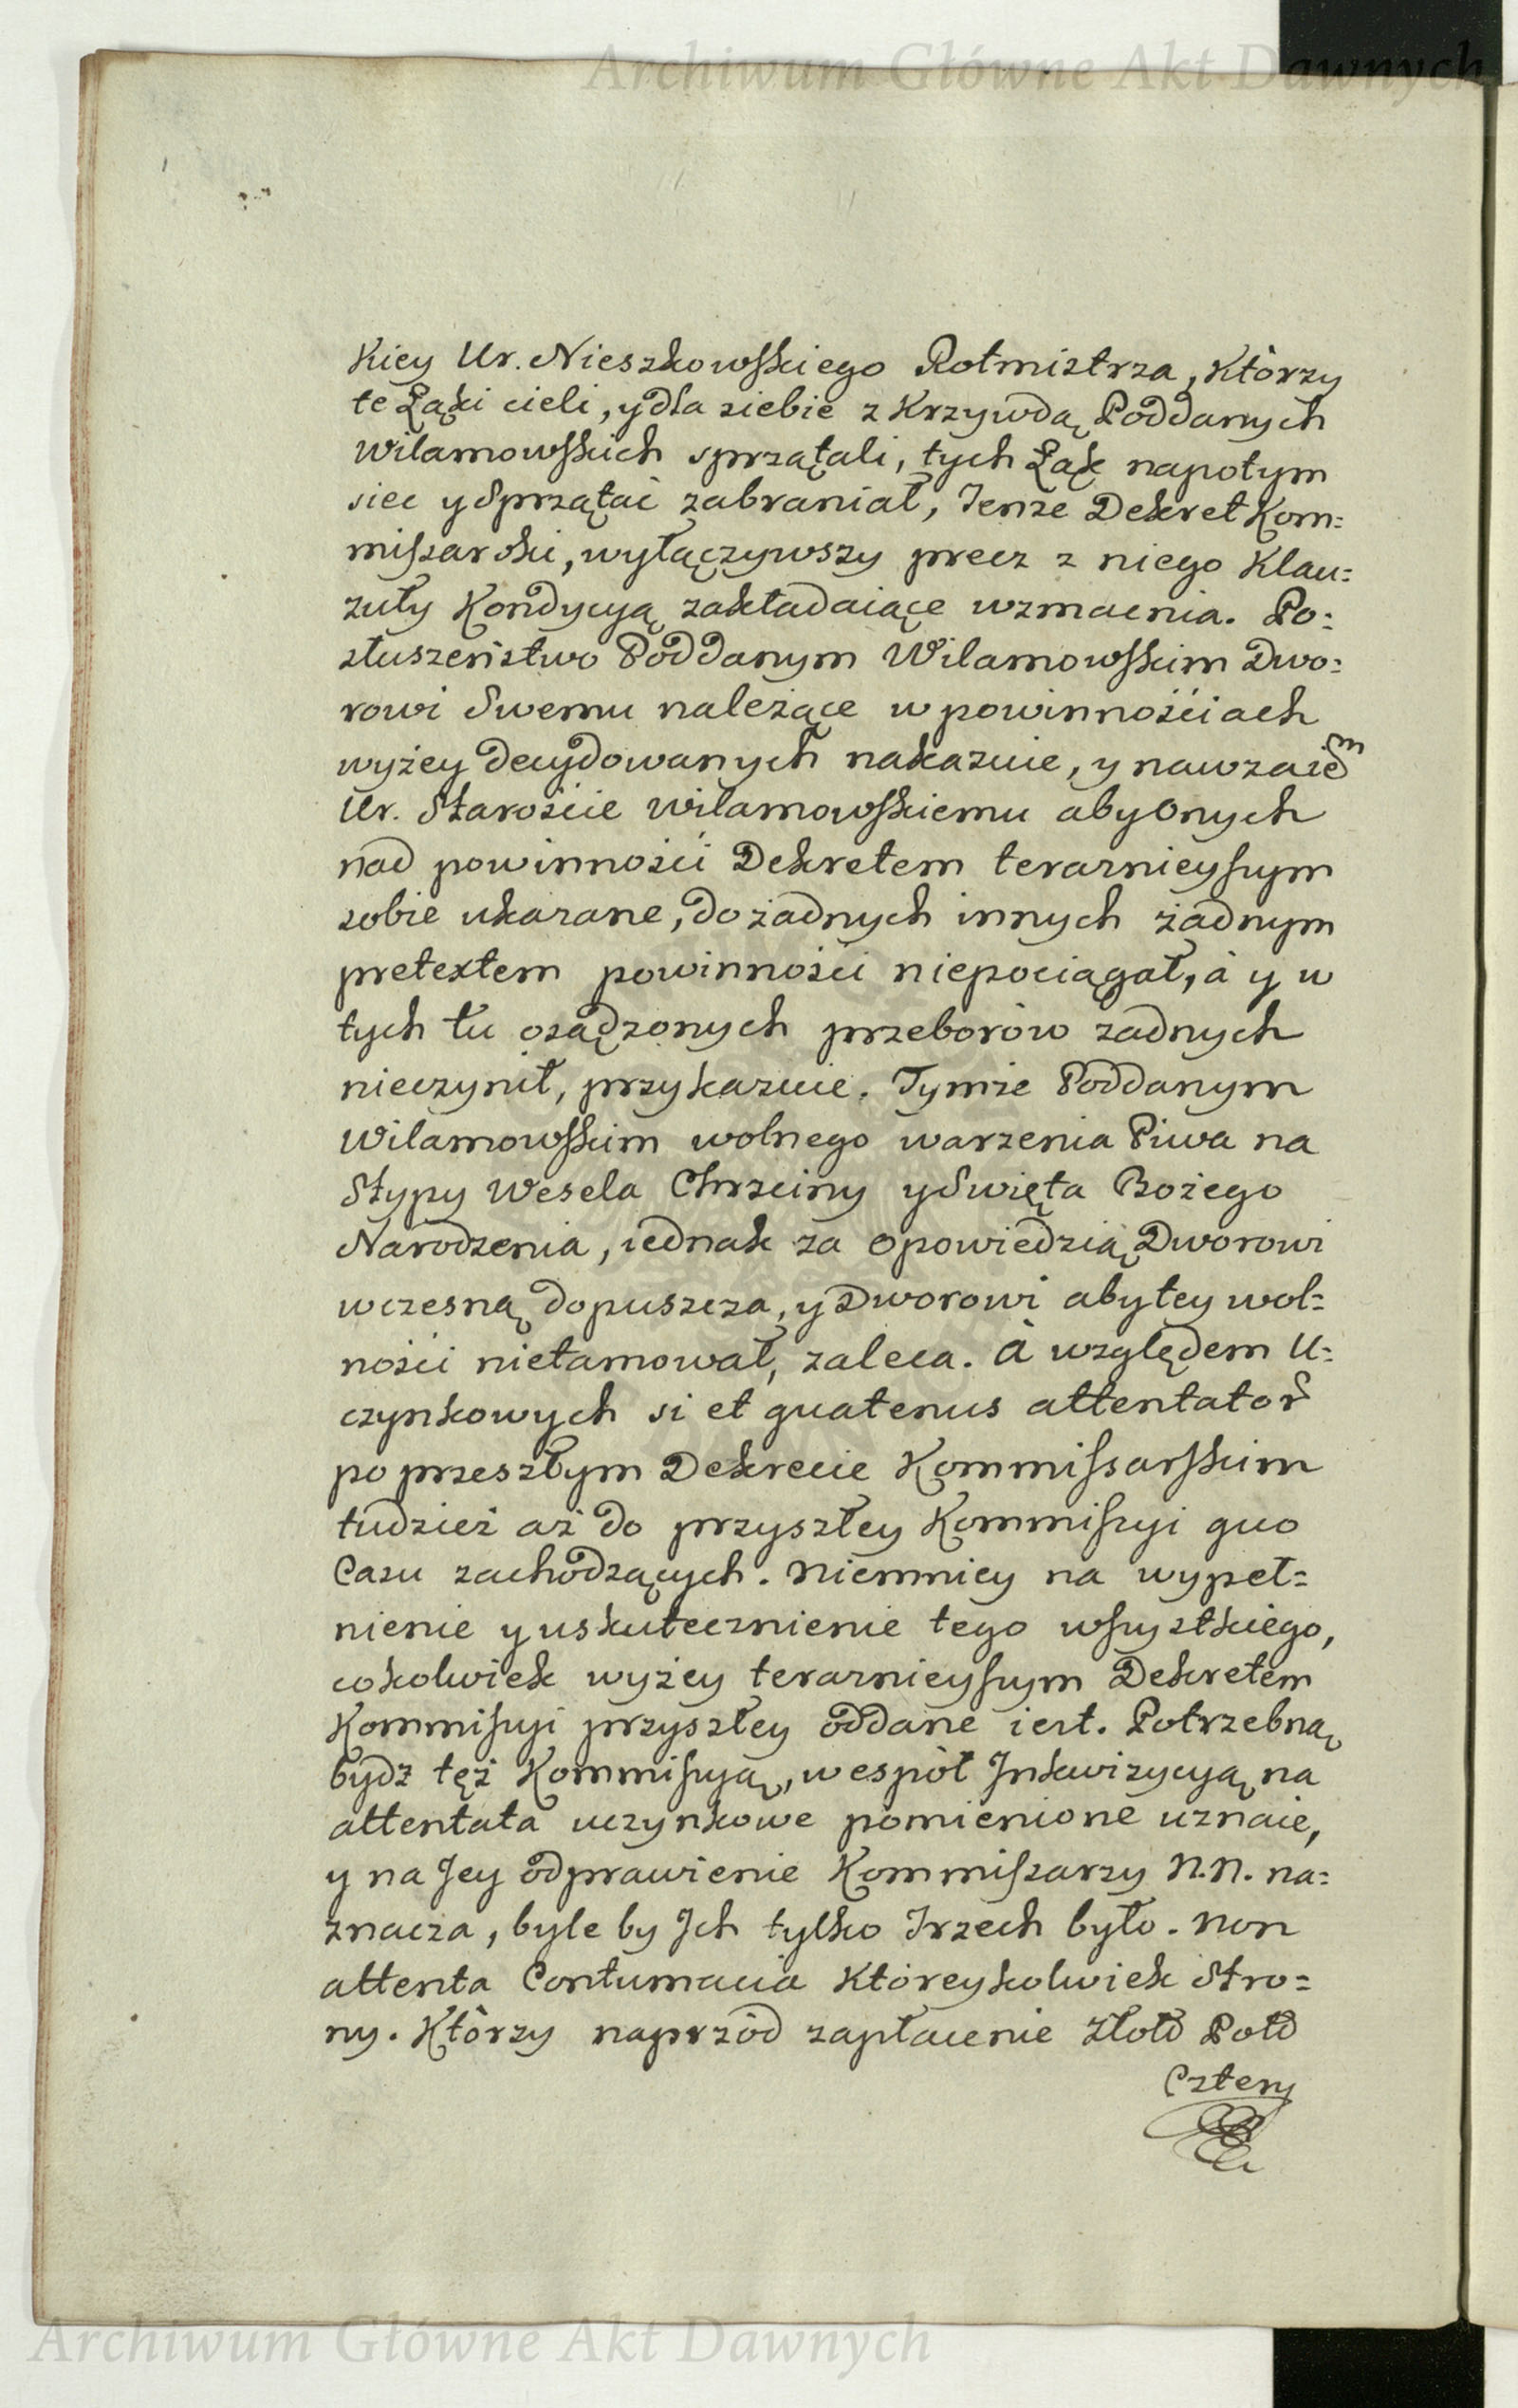 Archiwum Główne Akt Dawnych
Kiey Ur. Nieszkowskiego Rotmistrza, Ktòrzy
te Łąki cieli, y dla siebie z Krzywdą Poddanych
Wilamowskich sprzątali, tych Łąk napotym
siec y sprzątać zabraniał, Tenże Dekret Kom=
missarski, wyłączywszy precz z niego Klau=
zuły Kondycyą zakładaiące wzmacnia. Po=
słuszeństwo Poddanym Wilamowskim Dwo=
rowi Swemu należące w powinnościach
wyżey decydowanych nakazuie, y nawzaiem
Ur. Starościie Wilamowskiemu aby Onych
nad powinności Dekretem terazniejszym
sobie ukazane, do żadnych innych żadnym
pretextem powinności niepociągał, à y w
tych tu osądzonych przeborów żadnych
nieczynił, przykazuie. Tymże Poddanym
Wilamowskim wolnego warzenia Piwa na
Stypy Wesela Chrzciny y Swięta Bożego
Narodzenia, iednak za opowiedzią Dworowi
wczesną dopuszcza, y Dworowi aby tey wol=
ności nietamował, zaleca. à względem U=
czynkowych si et quatenus attentator
po przeszłym Dekrecie Kommissarskim
tudzież aż do przyszłey Kommissyi quo
Casu zachodzących. Niemniey na wypeł=
nienie y uskutecznienie tego wszystkiego,
cokolwiek wyżey terazniejszym Dekretem
Kommissyi przyszłey oddane iest. Potrzebną
bydz tęż Kommissyą, wespół Inkwizycyą na
attentata uczynkowe pomienione uznaie,
y na Jey odprawienie Kommissarzy N.N. na=
znacza, byle by Jch tylko Trzech było. Non
attenta Contumacia Którejkolwiek Stro=
ny. Ktòrzy naprzód zapłacenie Złotd Potd
Cztery
Archiwum Główne Akt Dawnych